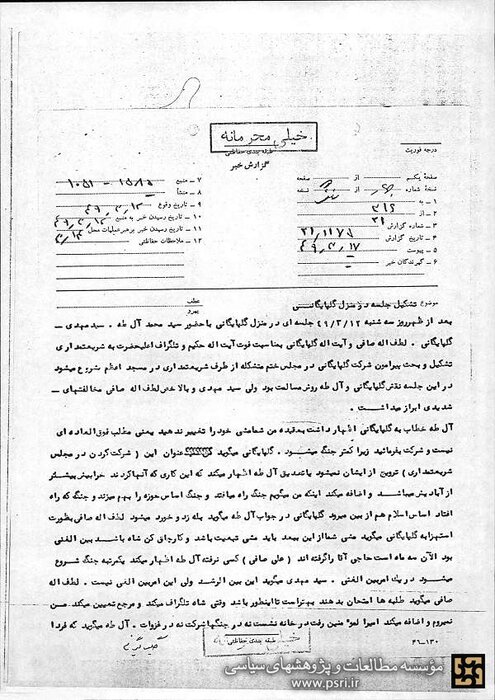 خیلی محرمانه
طبقه بندی حفاظتی
گزارش خبر
درجه فوریت
صفحه یکم از صفحه
نسخه شماره از نسخه
۱ - به ۳۱۶
۲ - از ۲۱
۳ - شماره گزارش ۲۱/۱۱۷۵
۴ - تاریخ گزارش ۴۹/۳/۱۷
۵ - پیوست
۶ - گیرندگان خبر
۷ - منبع
۸ - منشأ
۹ - تاریخ وقوع ۴۹/۳/۱۲
۱۰ - تاریخ رسیدن خبر به منبع ۴۹/۳/۱۲
۱۱ - تاریخ رسیدن خبر برهبر عملیات محل
۱۲ - ملاحظات حفاظتی
عطف
پیرو
موضوع تشکیل جلسه در منزل گلپایگانی
بعد از ظهر روز سه شنبه ۴۹/۳/۱۲ جلسه ای در منزل گلپایگانی با حضور سید محمد آل طه . سید مهدی -
گلپایگانی . لطف اله صافی و آیت اله گلپایگانی بمناسبت فوت آیت اله حکیم و تلگراف اعلیحضرت به شریعتمداری
تشکیل و بحث پیرامون شرکت گلپایگانی در مجلس ختم متشکله از طرف شریعتمداری در مسجد اعظم شروع میشود
در این جلسه نقش گلپایگانی و آل طه روش مسالمت بود ولی سید مهدی و بالاخص لطف اله صافی مخالفتهای -
شدیدی ابراز میداشت .
آل طه خطاب به گلپایگانی اظهار داشت بعقیده من شما مشی خود را تغییر ندهید یعنی مطلب فوق العاده ای
نیست و شرکت بفرمائید زیرا کمتر جنگ میشود . گلپایگانی میگوید عنوان این ( شرکت کردن در مجلس
شریعتمداری ) ترویج از ایشان نمیشود با تصدیق آل طه اظهار میکند که این کاری که آنها کردند خرابیش بیشتر
از آبادیش میباشد و اضافه میکند اینکه من میگویم جنگ راه میافتد و جنگ اساس حوزه را بهم میزند و جنگ که راه
افتاد اساس اسلام هم از بین میرود گلپایگانی در جواب آل طه میگوید بله زد و خورد میشود لطف اله صافی بصورت
استهزا به گلپایگانی میگوید مشی شما از این ببعد باید مشی تبعیت باشد و کارهای کن شاه باشد بین الغنی
بود الآن سه ماه است حاجی آقا را گرفته اند ( علی صافی ) کسی نرفته آل طه اظهار میکند یکمرتبه جنگ شروع
میشود در یک امر بین الغنی . سید مهدی میگوید این بین الرشد ولی این امر بین الغی نیست . لطف اله
صافی میگوید طلبه ها امتحان بدهند بهتر است تا اینطور باشد وقتی شاه تلگراف میکند و مرجع تعیین میکند من
نمیروم و اضافه میکند امیرا لمؤ منین رفت در خانه نشست نه در جنگها شرکت نه در غزوات . آل طه میگوید که فردا
طبقه بندی حفاظتی
۴۶-۱۳۰
مؤسسه مطالعات و پژوهشهای سیاسی
www.psri.ir